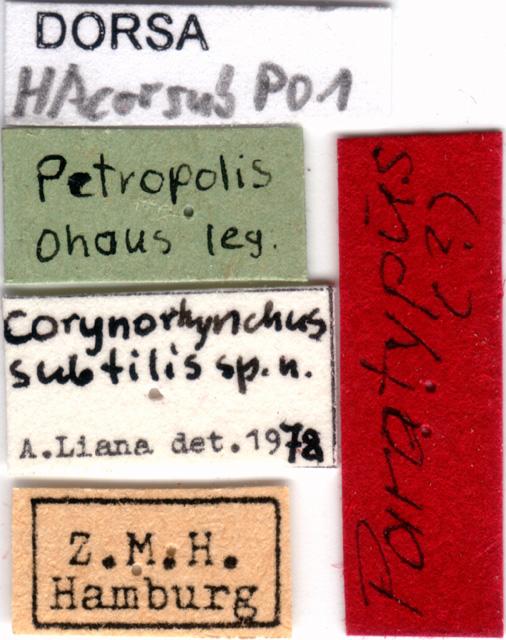 DORSA
HAcorsub P01
Petropolis
Ohaus leg.
Corynorhynchus
subtilis sp. n.
A. Liana det. 1978
Z.M.H.
Hamburg
Paratypus
(?)